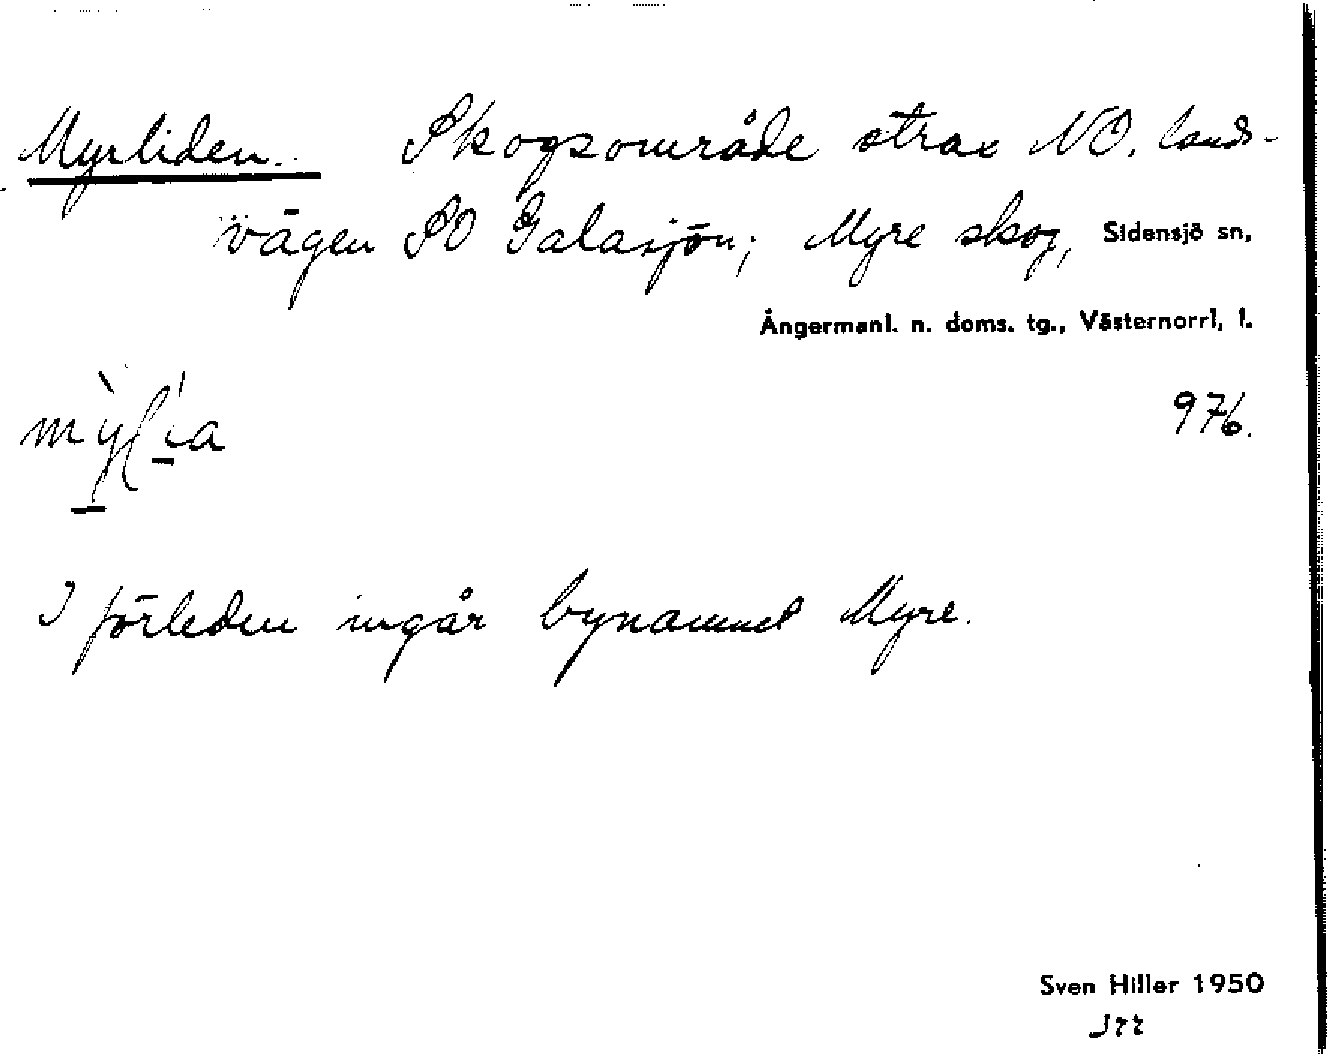 Myrliden. Skogsområde strax NO. lands-
vägen SO Galasjön; Myre skog, Sidensjö sn,
Ångermanl. n. doms. tg., Västernorrl, l.
976.
I förleden ingår bynamnet Myre.
Sven Hiller 1950